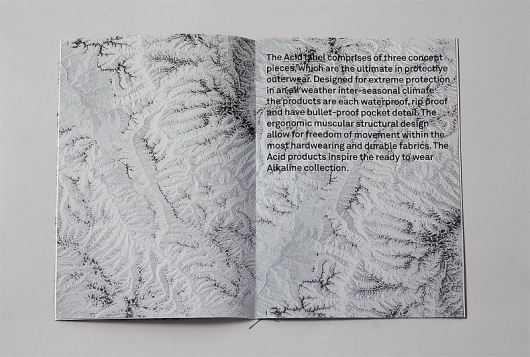 The Acid label comprises of three concept
pieces, which are the ultimate in protective
outerwear. Designed for extreme protection
in an all weather inter-seasonal climate
the products are each waterproof, rip proof
and have bullet-proof pocket detail. The
ergonomic muscular structural design
allow for freedom of movement within the
most hardwearing and durable fabrics. The
Acid products inspire the ready to wear
Alkaline collection.